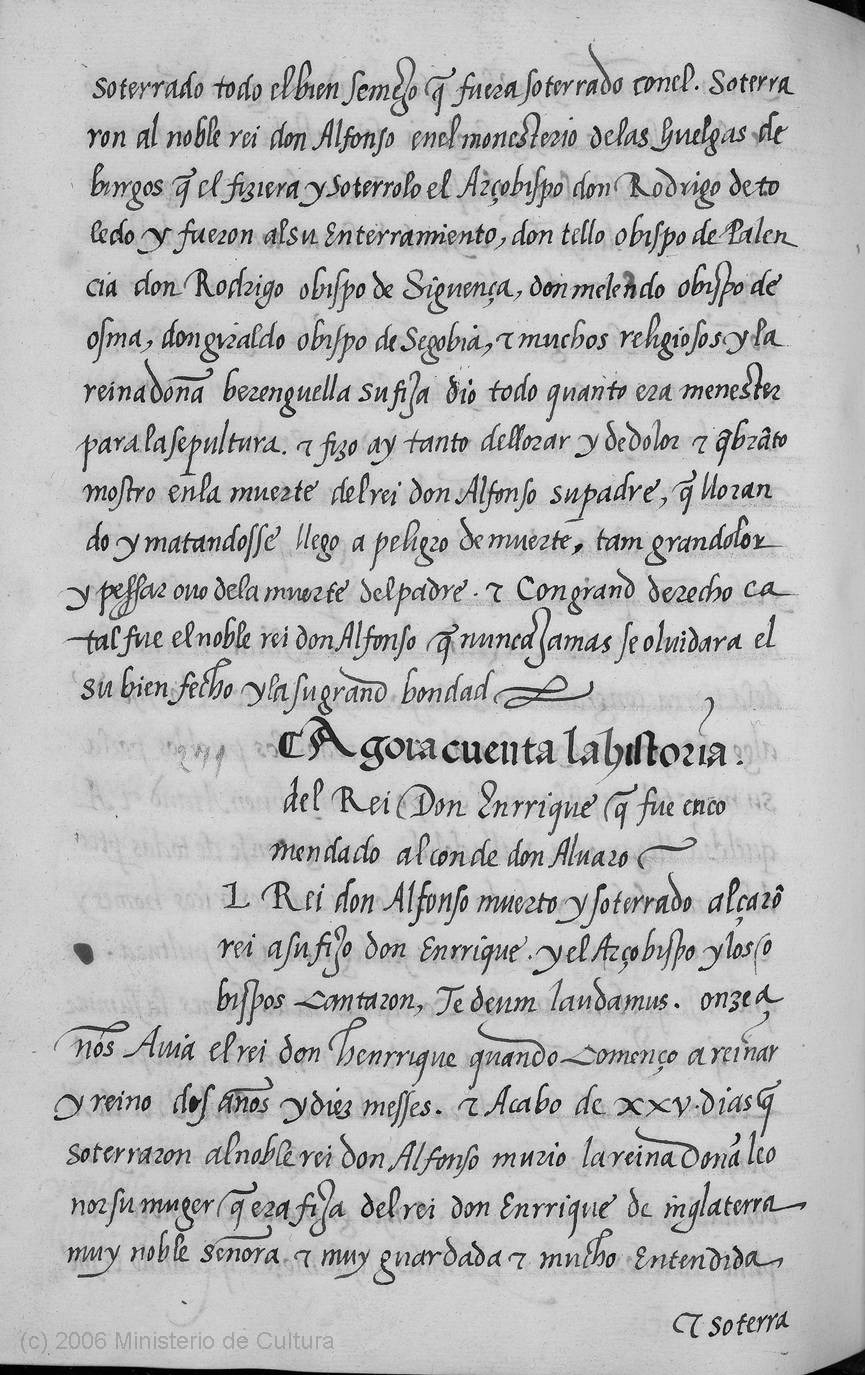 soterrado todo el bien semejo q̃ fuera soterrado con el. Soterra
ron al noble rei don Alfonso enel monesterio delas huelgas de
burgos q̃ el fiziera y soterrolo el Arçobispo don Rodrigo de to
ledo y fueron al su enterramiento, don tello obispo de Palen
cia don Rodrigo obispo de Siguença, don melendo obispo de
osma, don giraldo obispo de Segobia, τ muchos religiosos y la
reina doña berenguella su fija dio todo quanto era menester
para la sepultura. τ fizo ay tanto de llorar y de dolor τ q̃brãto
mostro enla muerte del rei don Alfonso su padre, q̃ lloran
do y matandosse llego a peligro de muerte, tam gran dolor
y pessar ovo dela muerte del padre. τ Con grand derecho ca
tal fue el noble rei don Alfonso q̃ nunca jamas se olvidara el
su bien fecho y la su grand bondad
Agora cuenta la historia.
del Rei Don Enrrique q̃ fue enco
mendado al conde don Alvaro
L Rei don Alfonso muerto y soterrado alçarõ
rei a su fijo don Enrrique. y el Arçobispo y los o
bispos cantaron, Te deum laudamus. onze a
ños Avia el rei don henrrique quando començo a reinar
y reino dos años y diez messes. τ Acabo de xxv. dias q̃
soterraron al noble rei don Alfonso murio la reina Doña leo
nor su muger q̃ era fija del rei don Enrrique de inglaterra
muy noble señora τ muy guardada τ mucho Entendida
τ soterra
(c) 2006 Ministerio de Cultura